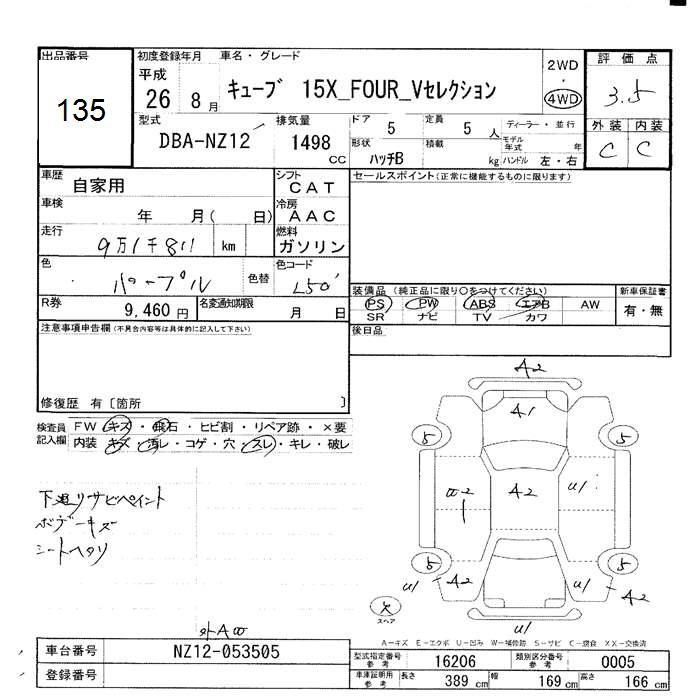 出品番号
135
初度登録年月
平成
26 8月
車名・グレード
キューブ 15X_FOUR_Vセレクション
2WD
・
4WD
評価点
3.5
外装 内装
C C
型式
DBA-NZ12
排気量
1498 CC
ドア
5
定員
5 人
ディーラー・並行
形状
ハッチB
積載
kg
モデル年式 年
ハンドル 左・右
車歴
自家用
シフト
CAT
セールスポイント(正常に機能するものに限ります)
車検
年 月( 日)
冷房
AAC
走行
9万1千811 km
燃料
ガソリン
色
パープル
色替
色コード
L50
装備品(純正品に限り○をつけてください)
PS PW ABS エアB AW
SR ナビ TV カワ
新車保証書
有・無
R券
9,460円
名変通知期限
月 日
注意事項申告欄(不具合内容等は具体的に記入して下さい)
後日品
修復歴 有〔箇所 〕
検査員記入欄
FW キズ・飛石・ヒビ割・リペア跡・×要
内装 キズ・汚レ・コゲ・穴・スレ・キレ・破レ
下廻リサビペイント
ボデーキズ
シートヘタリ
A2
A1
5 5
A2
U1
5 5
U1 A2
U1 A2
スペア
U1
A-キズ E-エクボ U-凹み W-補修跡 S-サビ C-腐食 XX-交換済
車台番号
NZ12-053505
登録番号
型式指定番号
参考
16206
類別区分番号
参考
0005
車庫証明用
参考
長さ 389 cm
幅 169 cm
高さ 166 cm